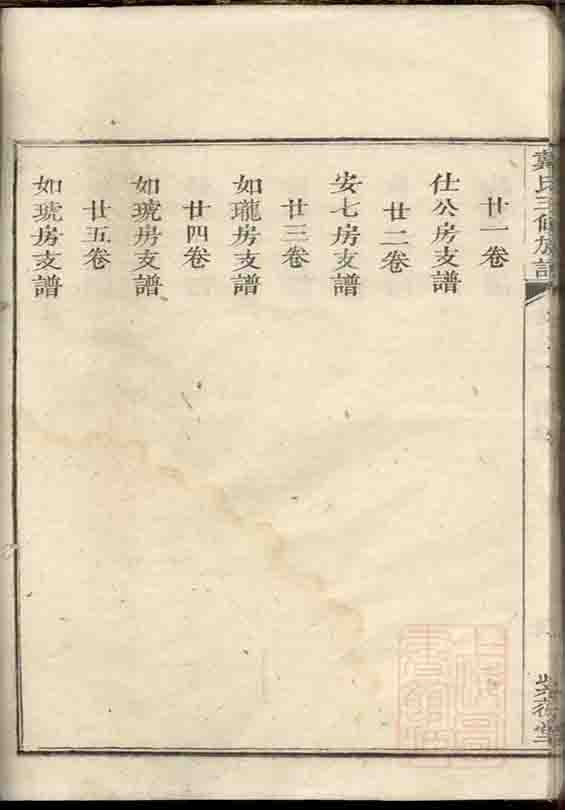 廿一卷
仕公房支譜
廿二卷
安七房支譜
廿三卷
如瓏房支譜
廿四卷
如琥房支譜
廿五卷
如琥房支譜